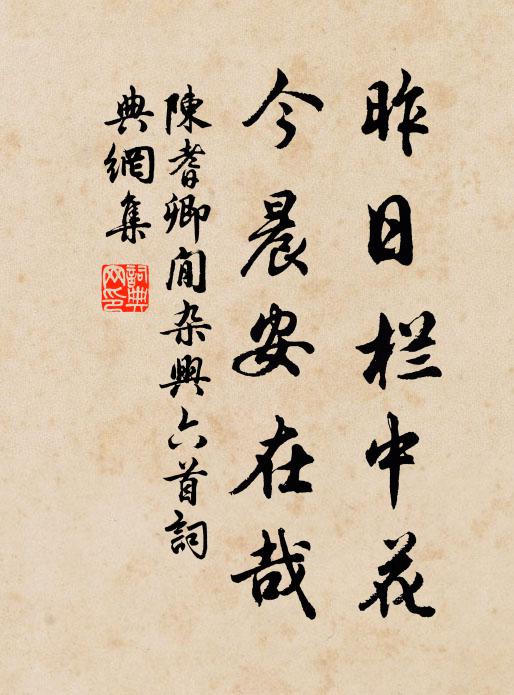 昨日栏中花
今晨安在哉
陳耆卿閒杂興六首詞
典網集
詞典
网印